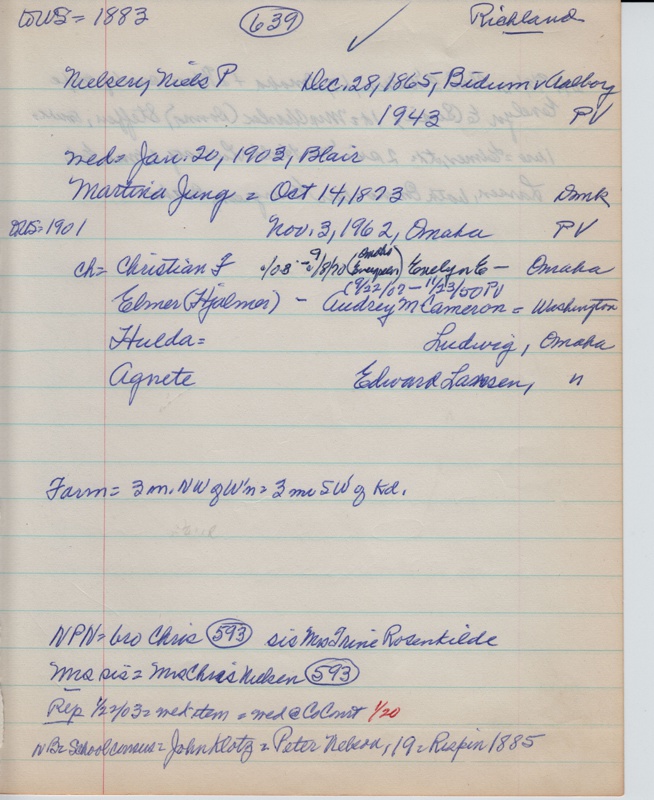 toUS = 1883 639 ✓ Richland
Nielsen, Niels P Dec. 28, 1865, Bidum v Aalborg
1943 PV
wed = Jan. 20, 1903, Blair
Martina Jung = Oct 14, 1873 Dmk
toUS = 1901 Nov. 3, 1962, Omaha PV
ch = Christian F 4/08 - 9/8/70 (Omaha European) Evelyn E - Omaha
(9/22/07 - 11/23/50 PV
Elmer (Hjalmer) - Audrey M Cameron = Washington
Hulda = Ludwig, Omaha
Agnete Edward Larsen, "
Farm = 3 m. NW of W'n = 3 mi SW of Kd.
NPN = bro Chris 593 sis Mrs Trine Rosenkilde
Mrs sis = Mrs Chris Nielsen 593
Rep 1/22/03 = wed item = wed @ CoCourt 1/20
NB = School census = John Klotz = Peter Nelson, 19 = Rispin 1885